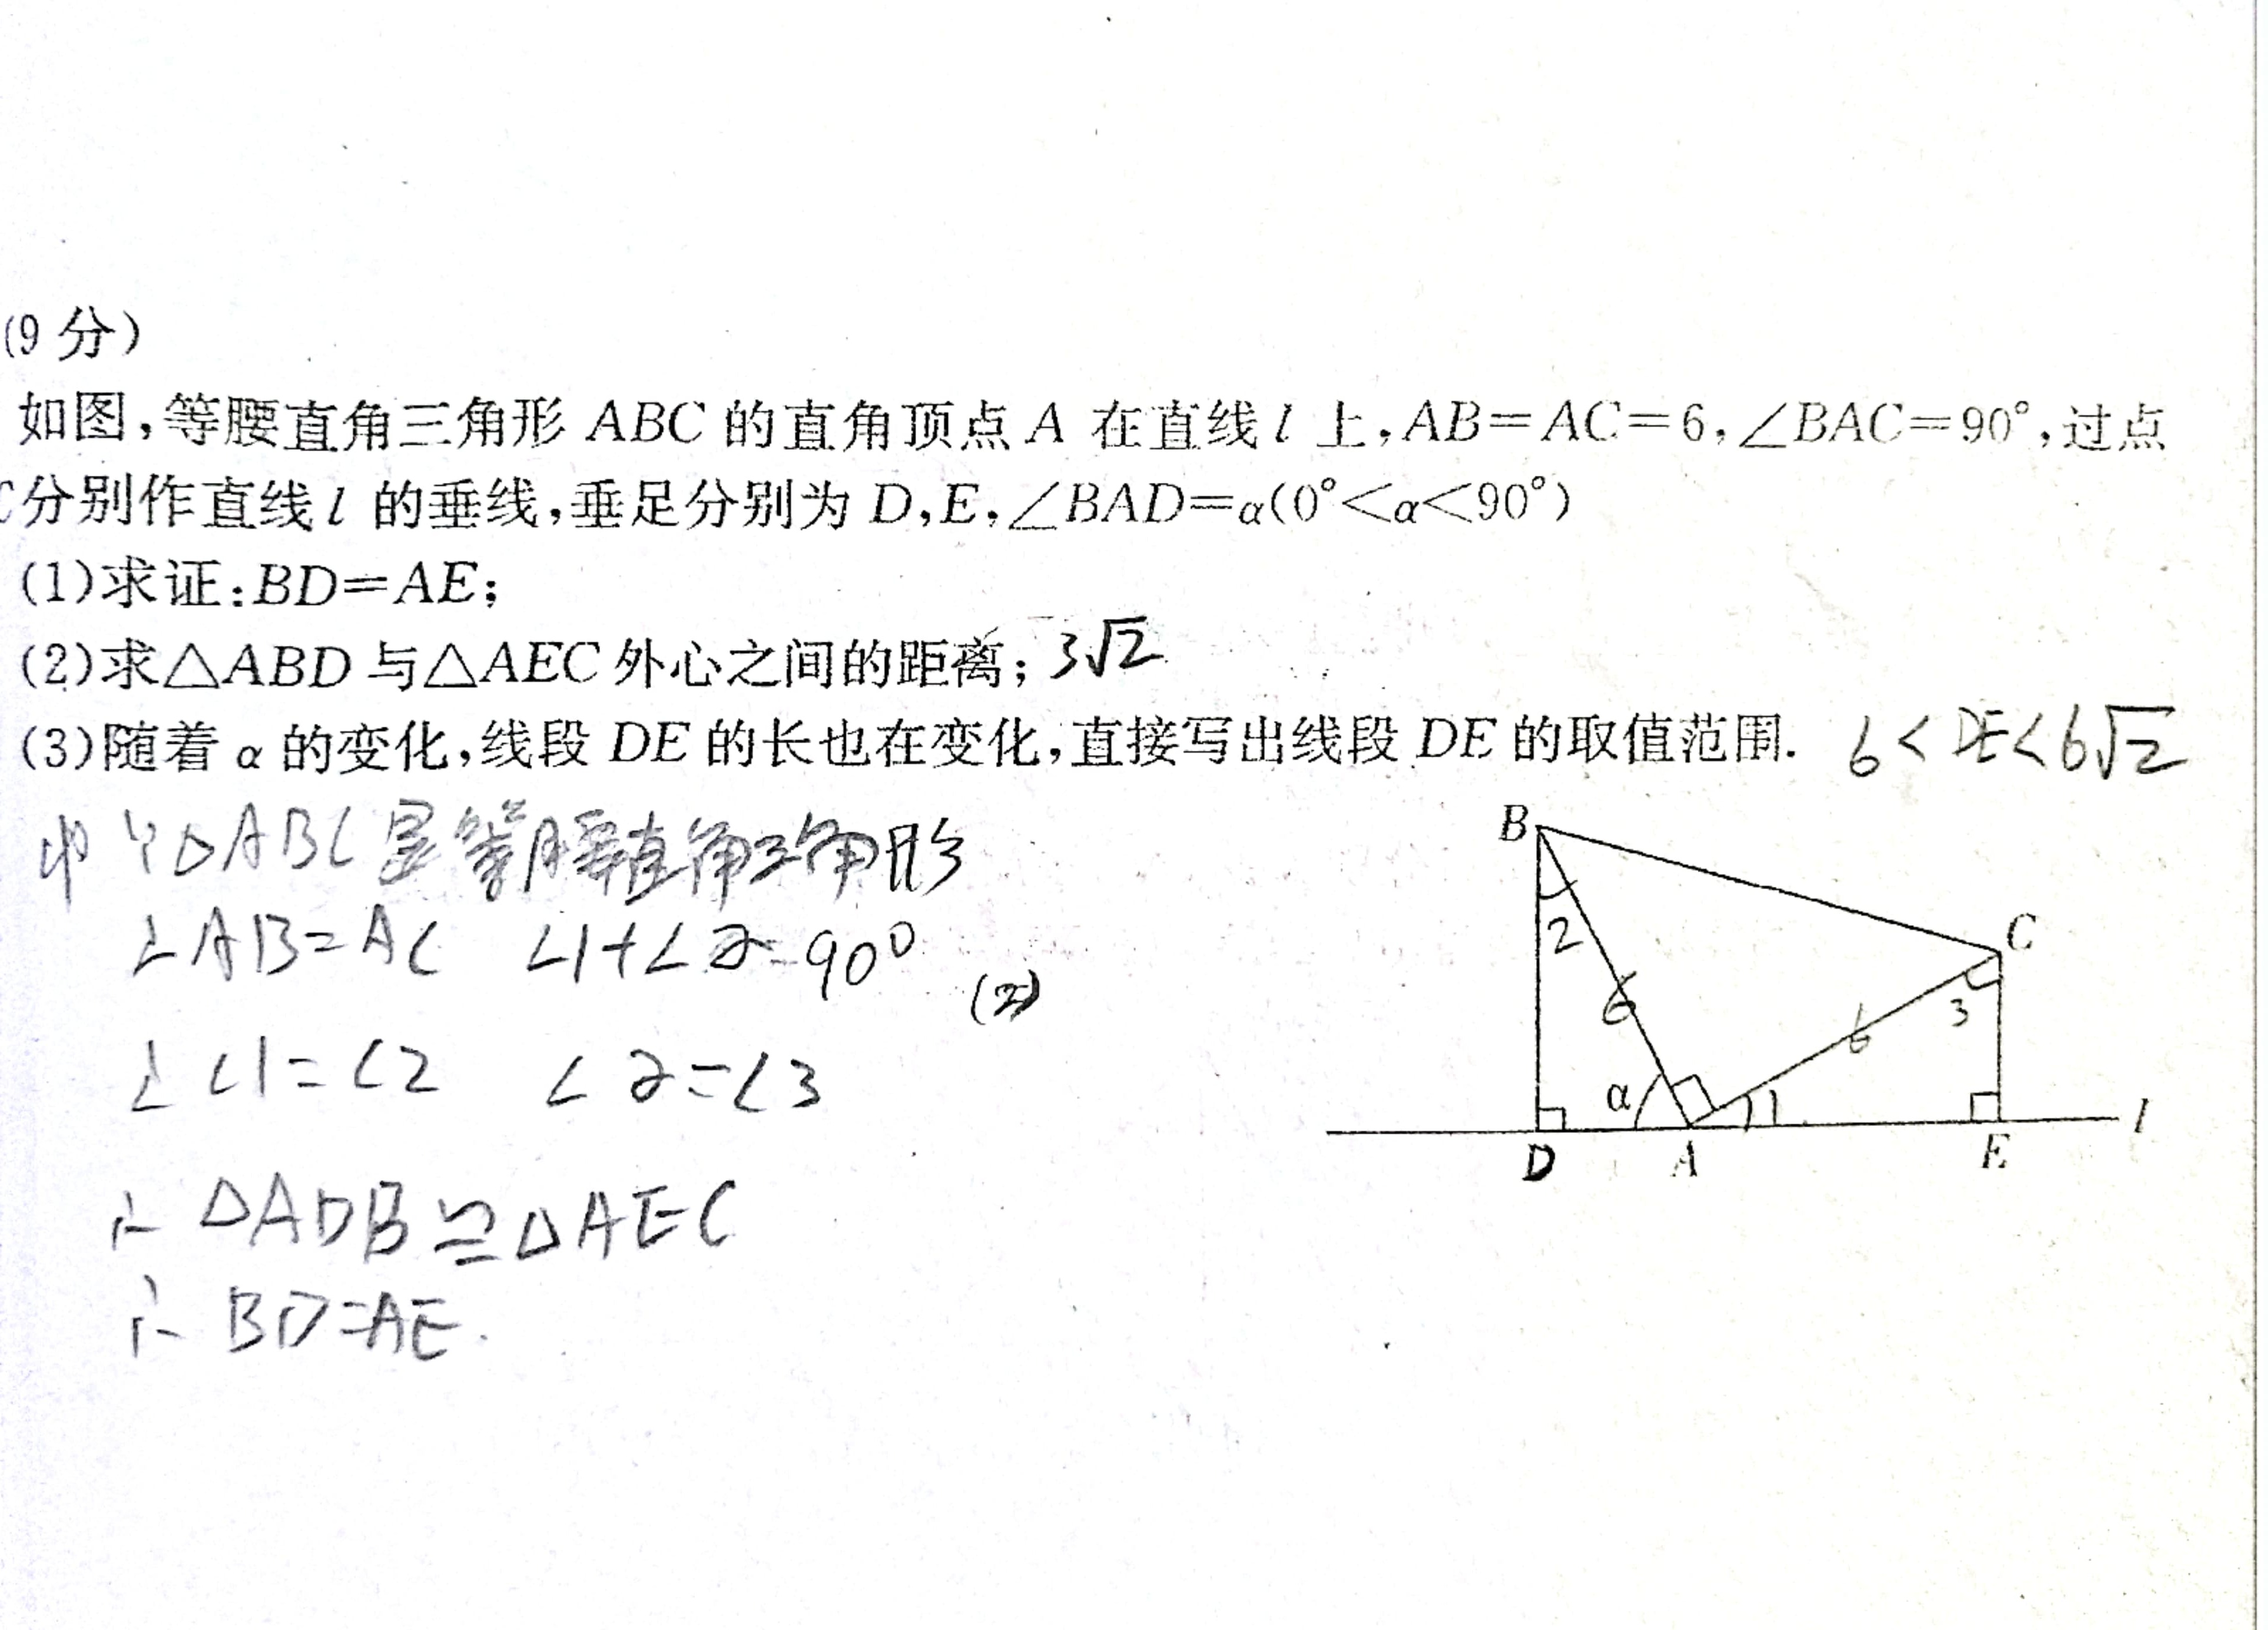 (9 分)
如图,等腰直角三角形 ABC 的直角顶点 A 在直线 l 上,AB=AC=6,∠BAC=90°,过点
C分别作直线 l 的垂线,垂足分别为 D,E,∠BAD=α(0°<α<90°)
(1)求证:BD=AE;
(2)求△ABD 与△AEC 外心之间的距离; 3√2
(3)随着 α 的变化,线段 DE 的长也在变化,直接写出线段 DE 的取值范围. 6<DE<6√2
∵△ABC是等腰直角三角形
∴AB=AC ∠1+∠α=90°
(2)
∴∠1=∠2 ∠α=∠3
∴ △ADB≌△AEC
∴ BD=AE.
B
C
2
6
6
3
α
1
D
A
E
l